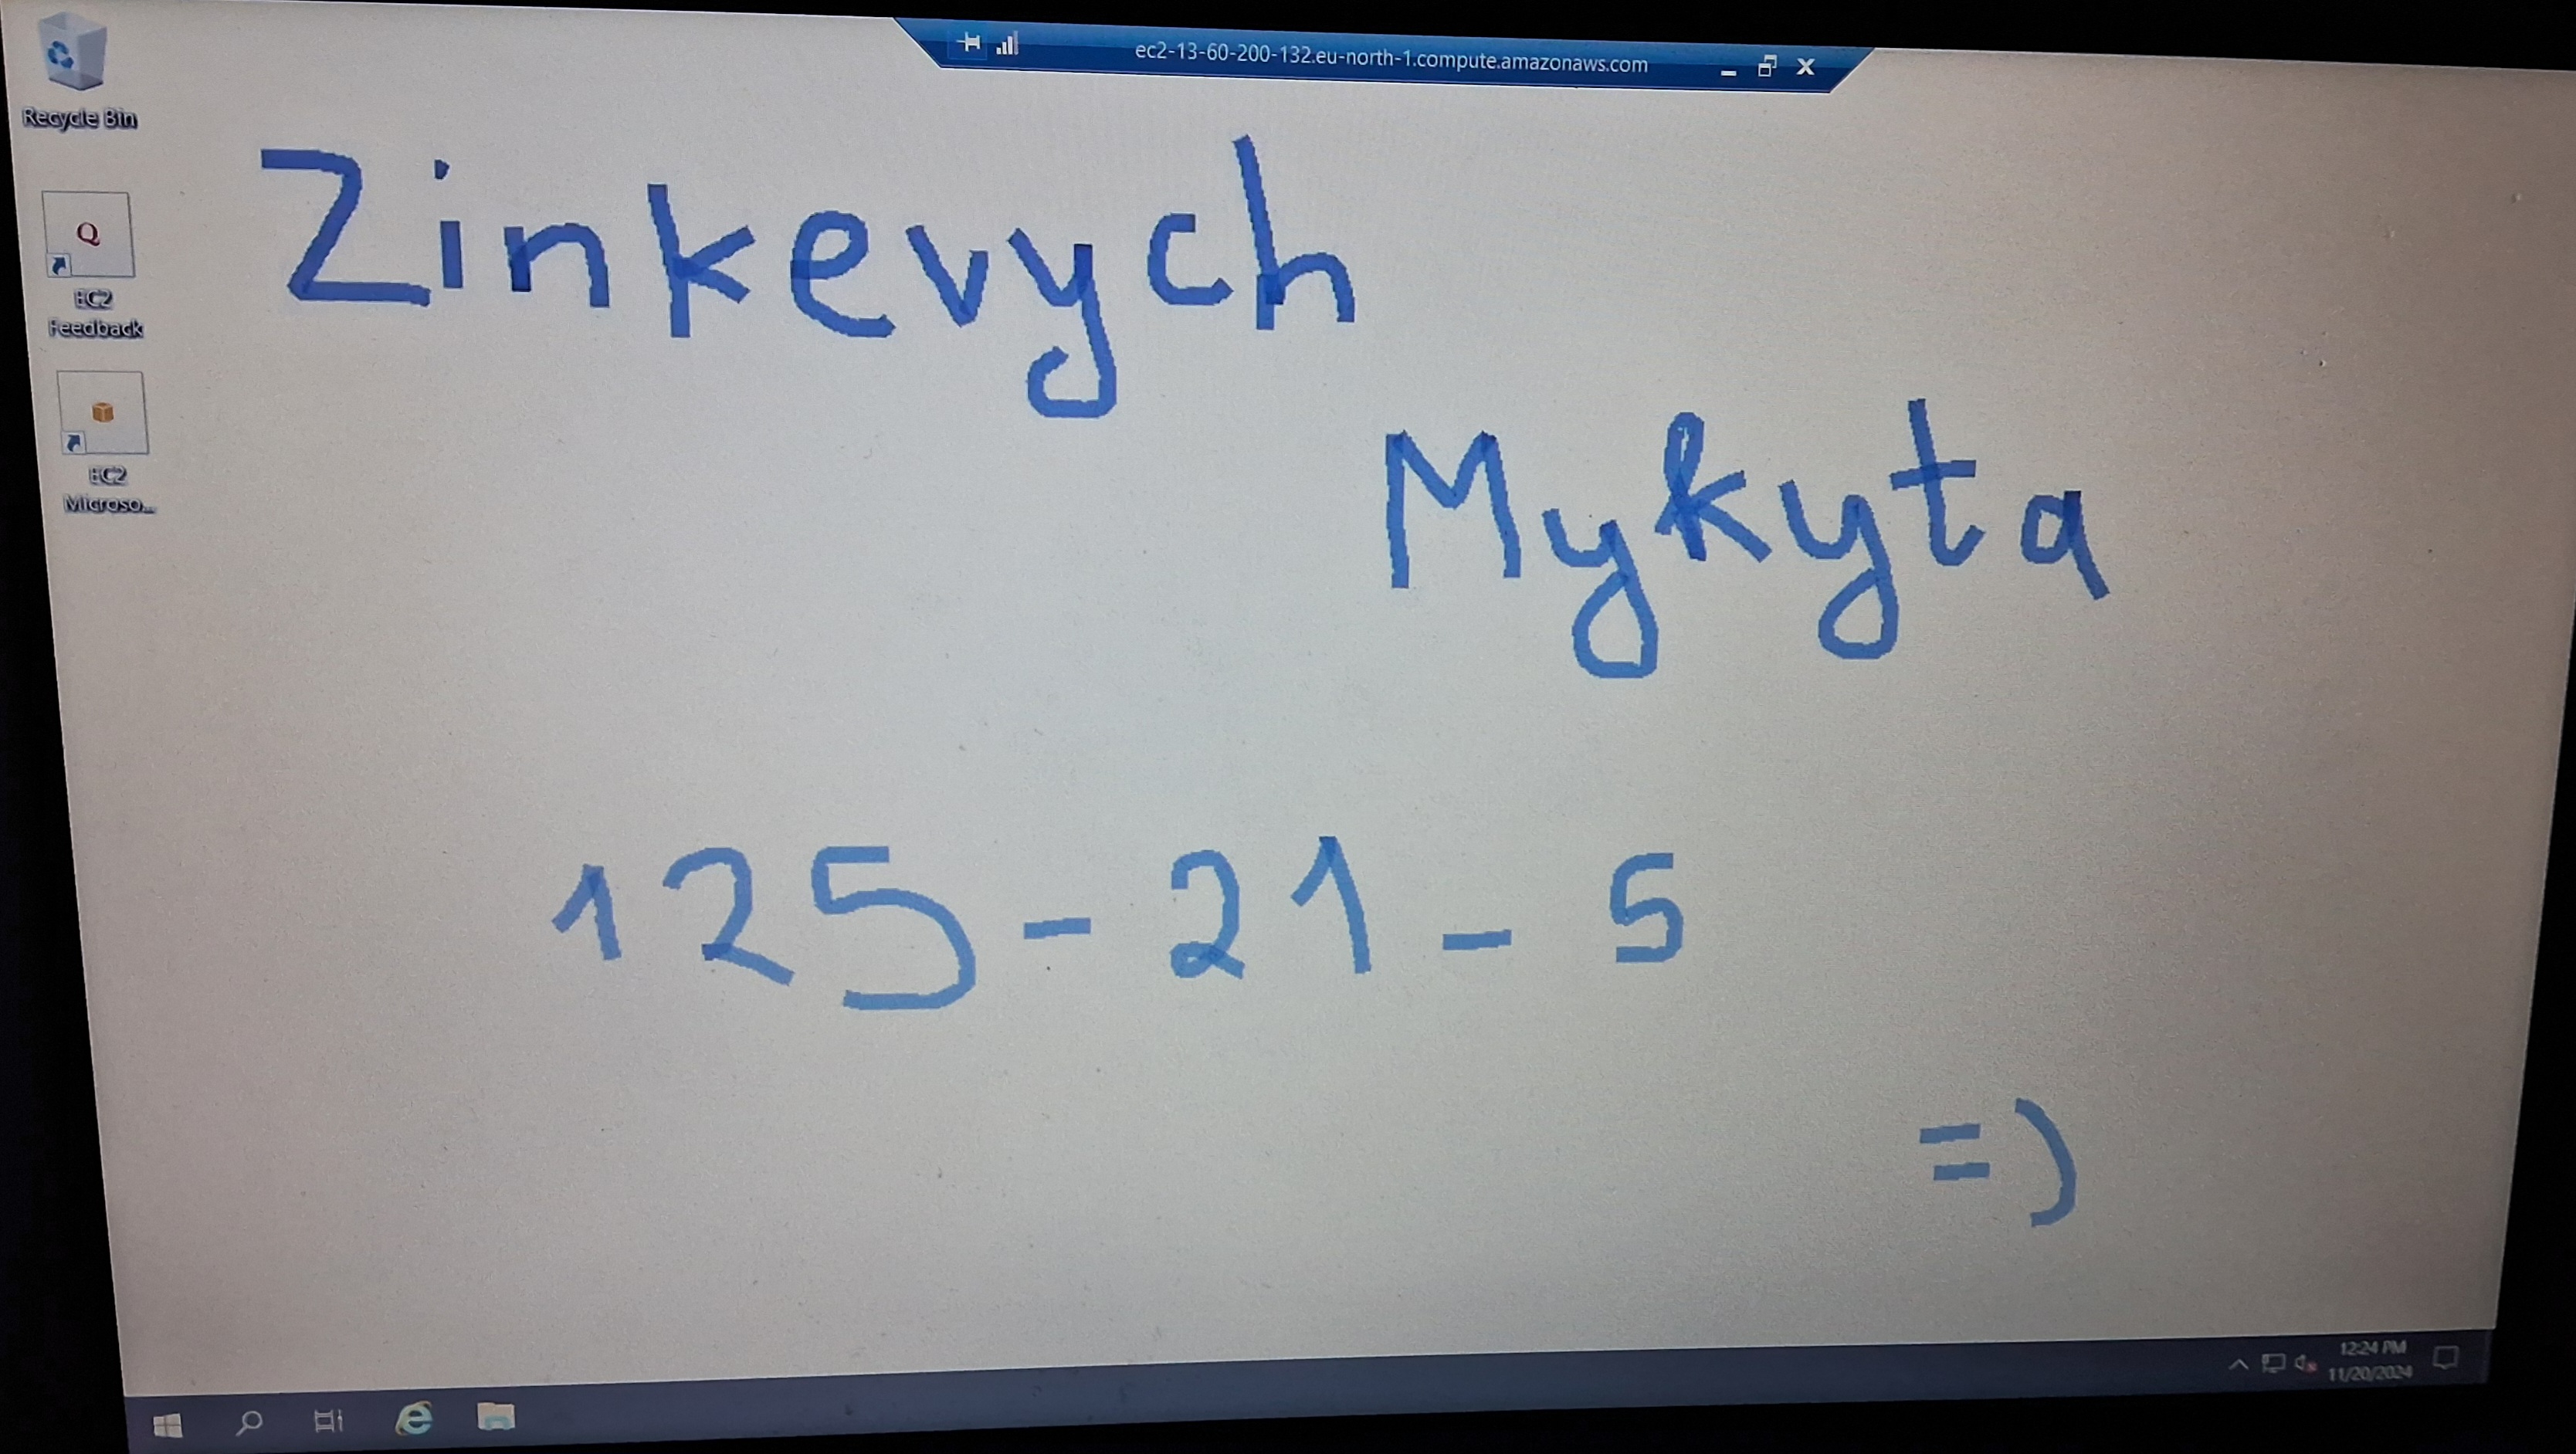 ec2-13-60-200-132.eu-north-1.compute.amazonaws.com
Recycle Bin
Zinkevych
Q
EC2
Feedback
EC2
Microso...
Mykyta
125 - 21 - 5
=)
12:24 PM
11/20/2024